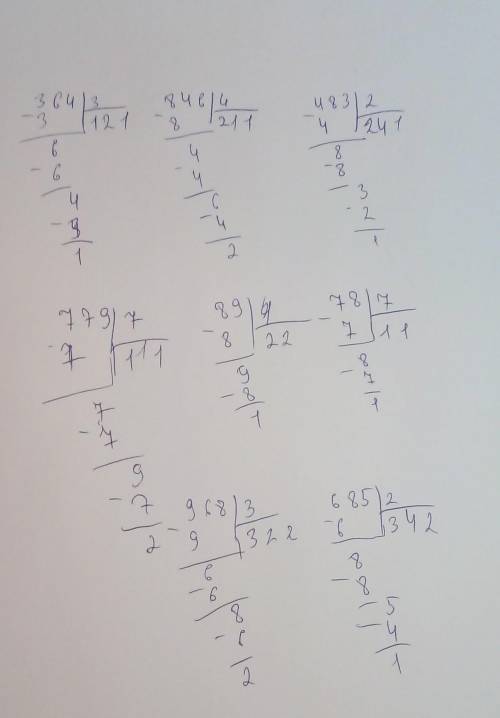 364 3
- 3 121
6
- 6
4
- 3
1
846 4
- 8 211
4
- 4
6
- 4
2
483 2
- 4 241
8
- 8
3
- 2
1
779 7
- 7 111
7
- 7
9
- 7
2
89 4
- 8 22
9
- 8
1
- 78 7
7 11
8
- 7
1
- 968 3
9 322
6
- 6
8
- 6
2
685 2
- 6 342
8
- 8
- 5
- 4
1